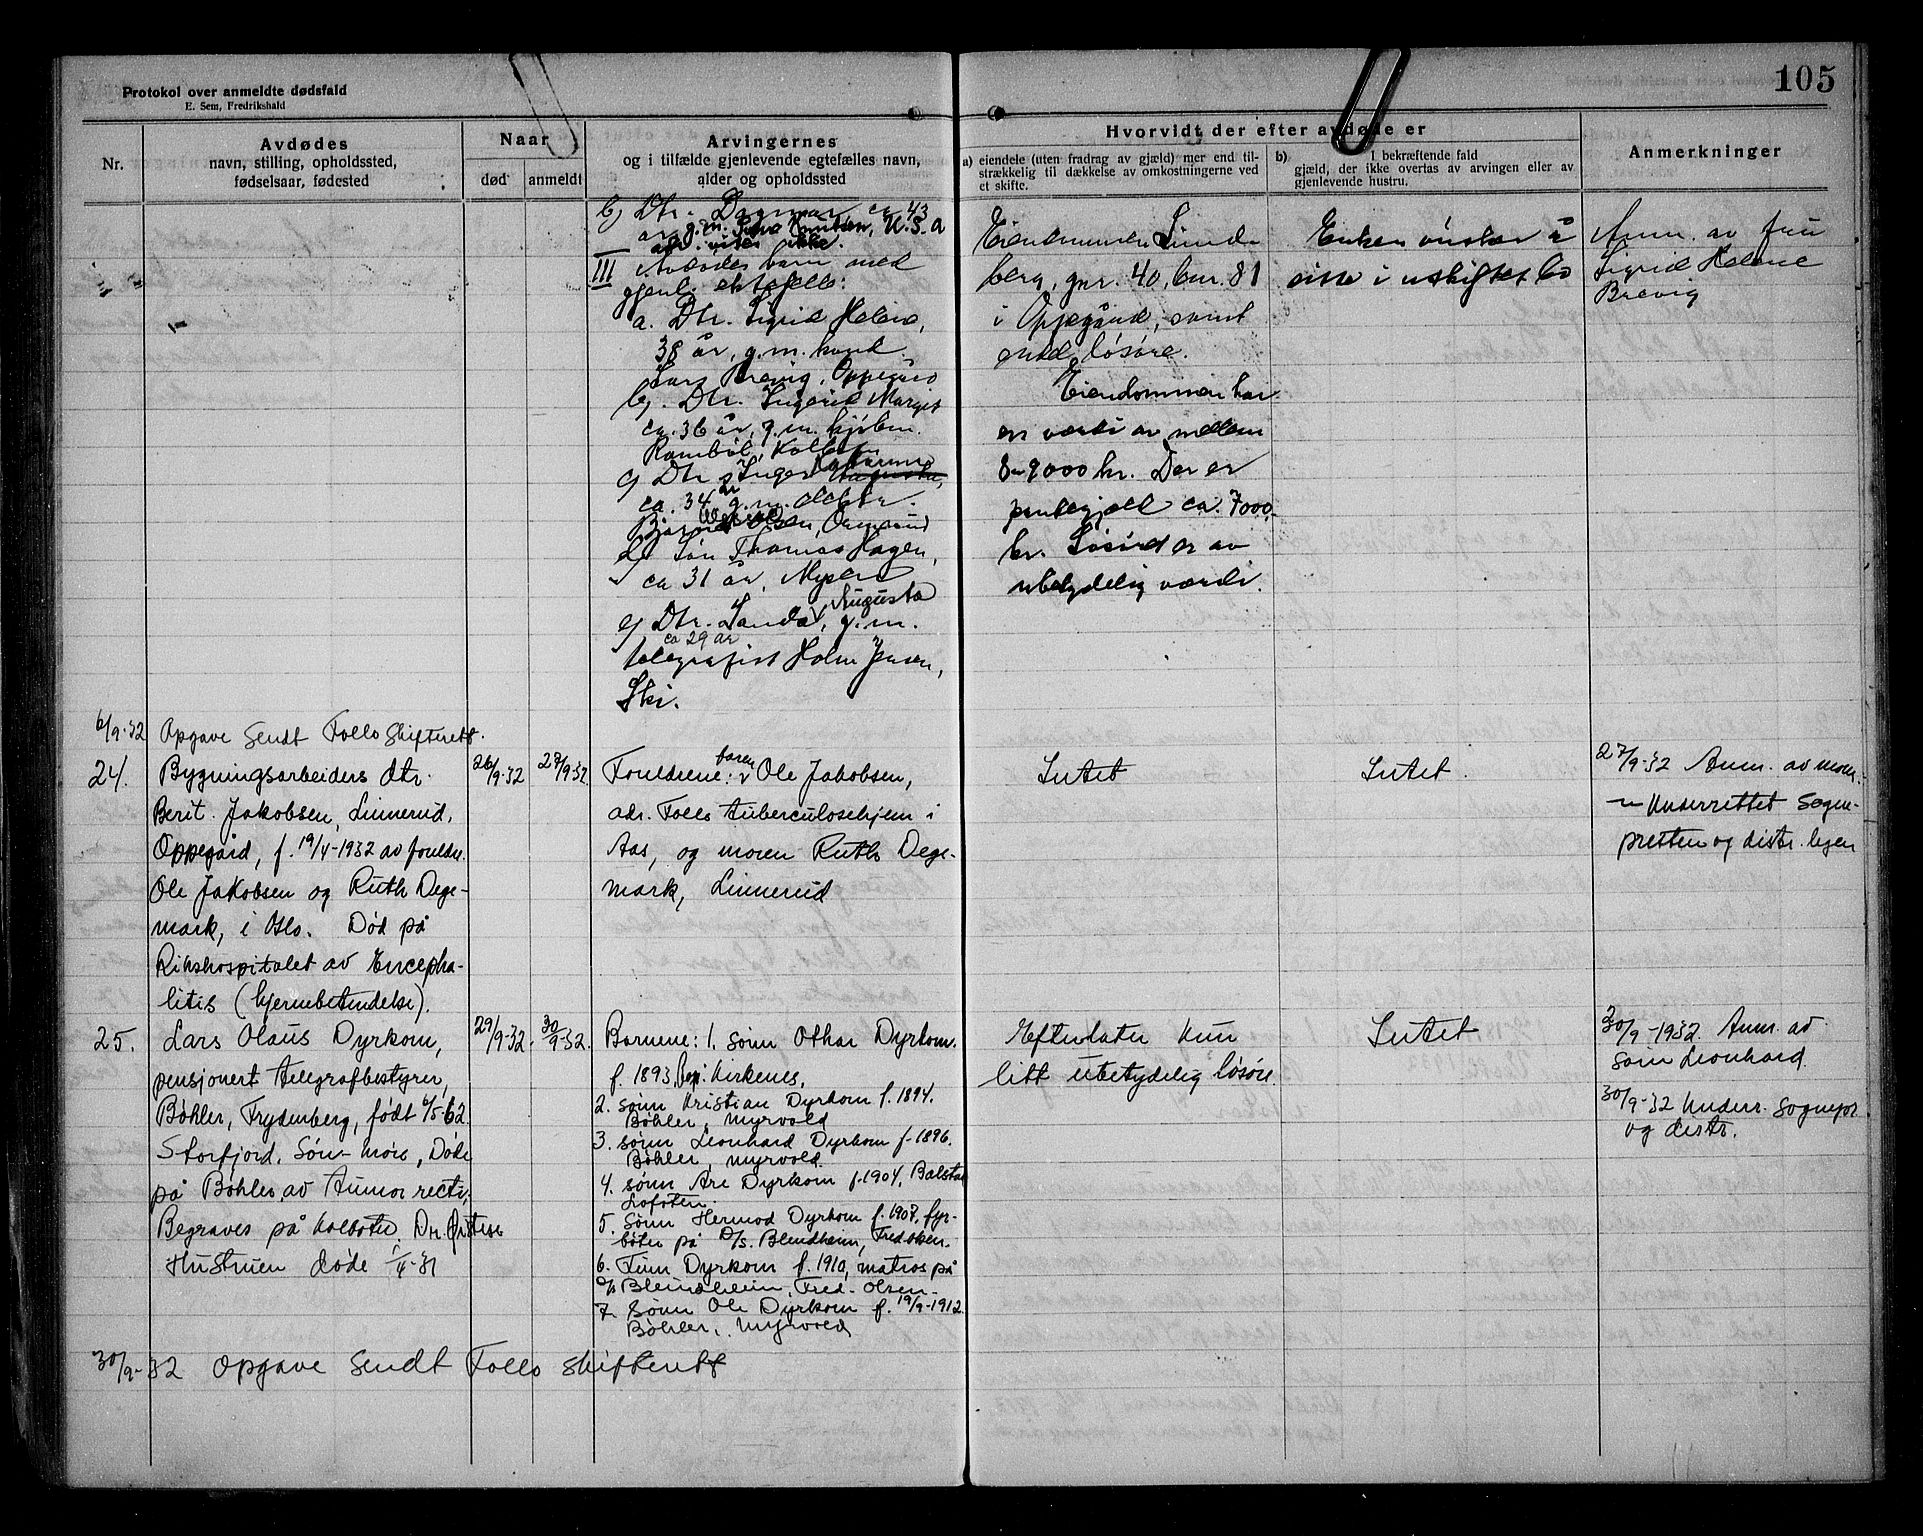 Protokol over anmeldte dødsfald
E. Sem, Fredrikshald
105
Nr.
Avdødes
navn, stilling, opholdssted,
fødselsaar, fødested
Naar
død
anmeldt
Arvingernes
og i tilfælde gjenlevende egtefælles navn,
alder og opholdssted
Hvorvidt der efter avdøde er
a) eiendele (uten fradrag av gjæld) mer end til-
strækkelig til dækkelse av omkostningerne ved
et skifte.
b) I bekræftende fald
gjæld, der ikke overtas av arvingen eller av
gjenlevende hustru.
Anmerkninger
b) Dtr. Dagmar ca 43
år g.m. Knutsen, U.S.A
adr. vites ikke.
III Avdødes barn med
gjenl. ektefelle:
a. Dtr. Sigrid Helene,
38 år, g.m.
Lars Brevig, Oppegård
b). Dtr. Ingerid Margit
ca. 36 år, g.m. kjøbm.
Rambøl, Kolbotn
c) Dtr. Inger
ca. 34 år g.m.
Olsen,
d) Søn Thomas Hagen,
ca 31 år, Mysen
e) Dtr. Augusta, g.m.
ca 29 år
telegrafist Holm Jensen,
Ski.
Eiendommen
berg, gnr. 40, bnr. 81
i Oppegård, samt
endel løsøre.
Eiendommen har
en værdi av mellem
8-9000 kr. Der er
pantegjæld ca. 7000,-
kr. Løsøret er av
ubetydelig værdi.
Enken ønsker å
sitte i uskiftet bo
Anm. av fru
Sigrid Helene
Brevig
6/9-32 Opgave sendt Follo skifterett.
24.
Bygningsarbeiders dtr.
Berit Jakobsen, Linnerud,
Oppegård, f. 19/4-1932 av foreldre
Ole Jakobsen og Ruth Dege-
mark, i Oslo. Død på
Rikshospitalet av Encepha-
litis (hjernebetendelse).
26/9-32
27/9-32
Foreldrene: faren Ole Jakobsen,
adr. Follo Tuberculosehjem i
Aas, og moren Ruth Dege-
mark, Linnerud
Intet
Intet.
27/9-32 Anm. av mor.
— Underrettet sogne-
presten og distr. legen
25.
Lars Olaus Dyrkorn,
pensjonert telegrafbestyrer,
Bøhler, Frydenberg, født 6/5-62
Storfjord, Sön-möre, Døde
på Bøhler, av Tumor recti,
Begraves på Kolbotn. Dr.
Hustruen døde 1/4-31
29/9-32.
30/9-32.
Barnene: 1. sønn Othar Dyrkorn.
f. 1893, Kirkenes,
2. sønn Kristian Dyrkorn f. 1894.
Bøhler, Myrvold
3. sønn Leonhard Dyrkorn f. 1896.
Bøhler, Myrvold.
4. sønn Are Dyrkorn f. 1904, Balstad
Lofoten.
5. Sønn Hermod Dyrkorn f. 1907, fyr-
bøter på D/S. Blendheim, Fred. Olsen.
6. Finn Dyrkorn f. 1910, matros på
D/S Blendheim, Fred. Olsen.
7. Sønn Ole Dyrkorn f. 19/9-1912.
Bøhler, Myrvold
Efterlater kun
litt ubetydelig løsøre.
Intet
30/9-1932. Anm. av
sønn Leonhard.
30/9-32 Underr. sognepr.
og distr.
30/9-32 Opgave sendt Follo skifterett